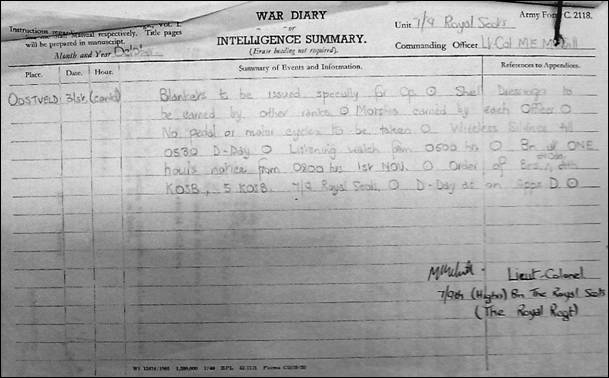 Instructions regarding
Vol. I.
respectively. Title pages
will be prepared in manuscript.
WAR DIARY
or
INTELLIGENCE SUMMARY.
(Erase heading not required).
Army Form C. 2118.
Unit 7/9 Royal Scots
Commanding Officer Lt Col
Month and Year October
Place. Date. Hour. Summary of Events and Information. References to Appendices.
OOSTVELD 31st. (contd) Blankets to be issued specially for Op. ⊙ Shell Dressings to
be carried by other ranks ⊙ Morphia carried by each Officer ⊙
No pedal or motor cycles to be taken ⊙ Wireless Silence till
0530 D-Day ⊙ Listening watch from 0500 hrs ⊙ Bn at ONE
hours notice from 0800 hrs 1st NOV. ⊙ Order of
KOSB, 5 KOSB. 7/9 Royal Scots, ⊙ D-Day as on Appx D. ⊙
Lieut-Colonel
7/9th (Highrs) Bn The Royal Scots
(The Royal Regt)